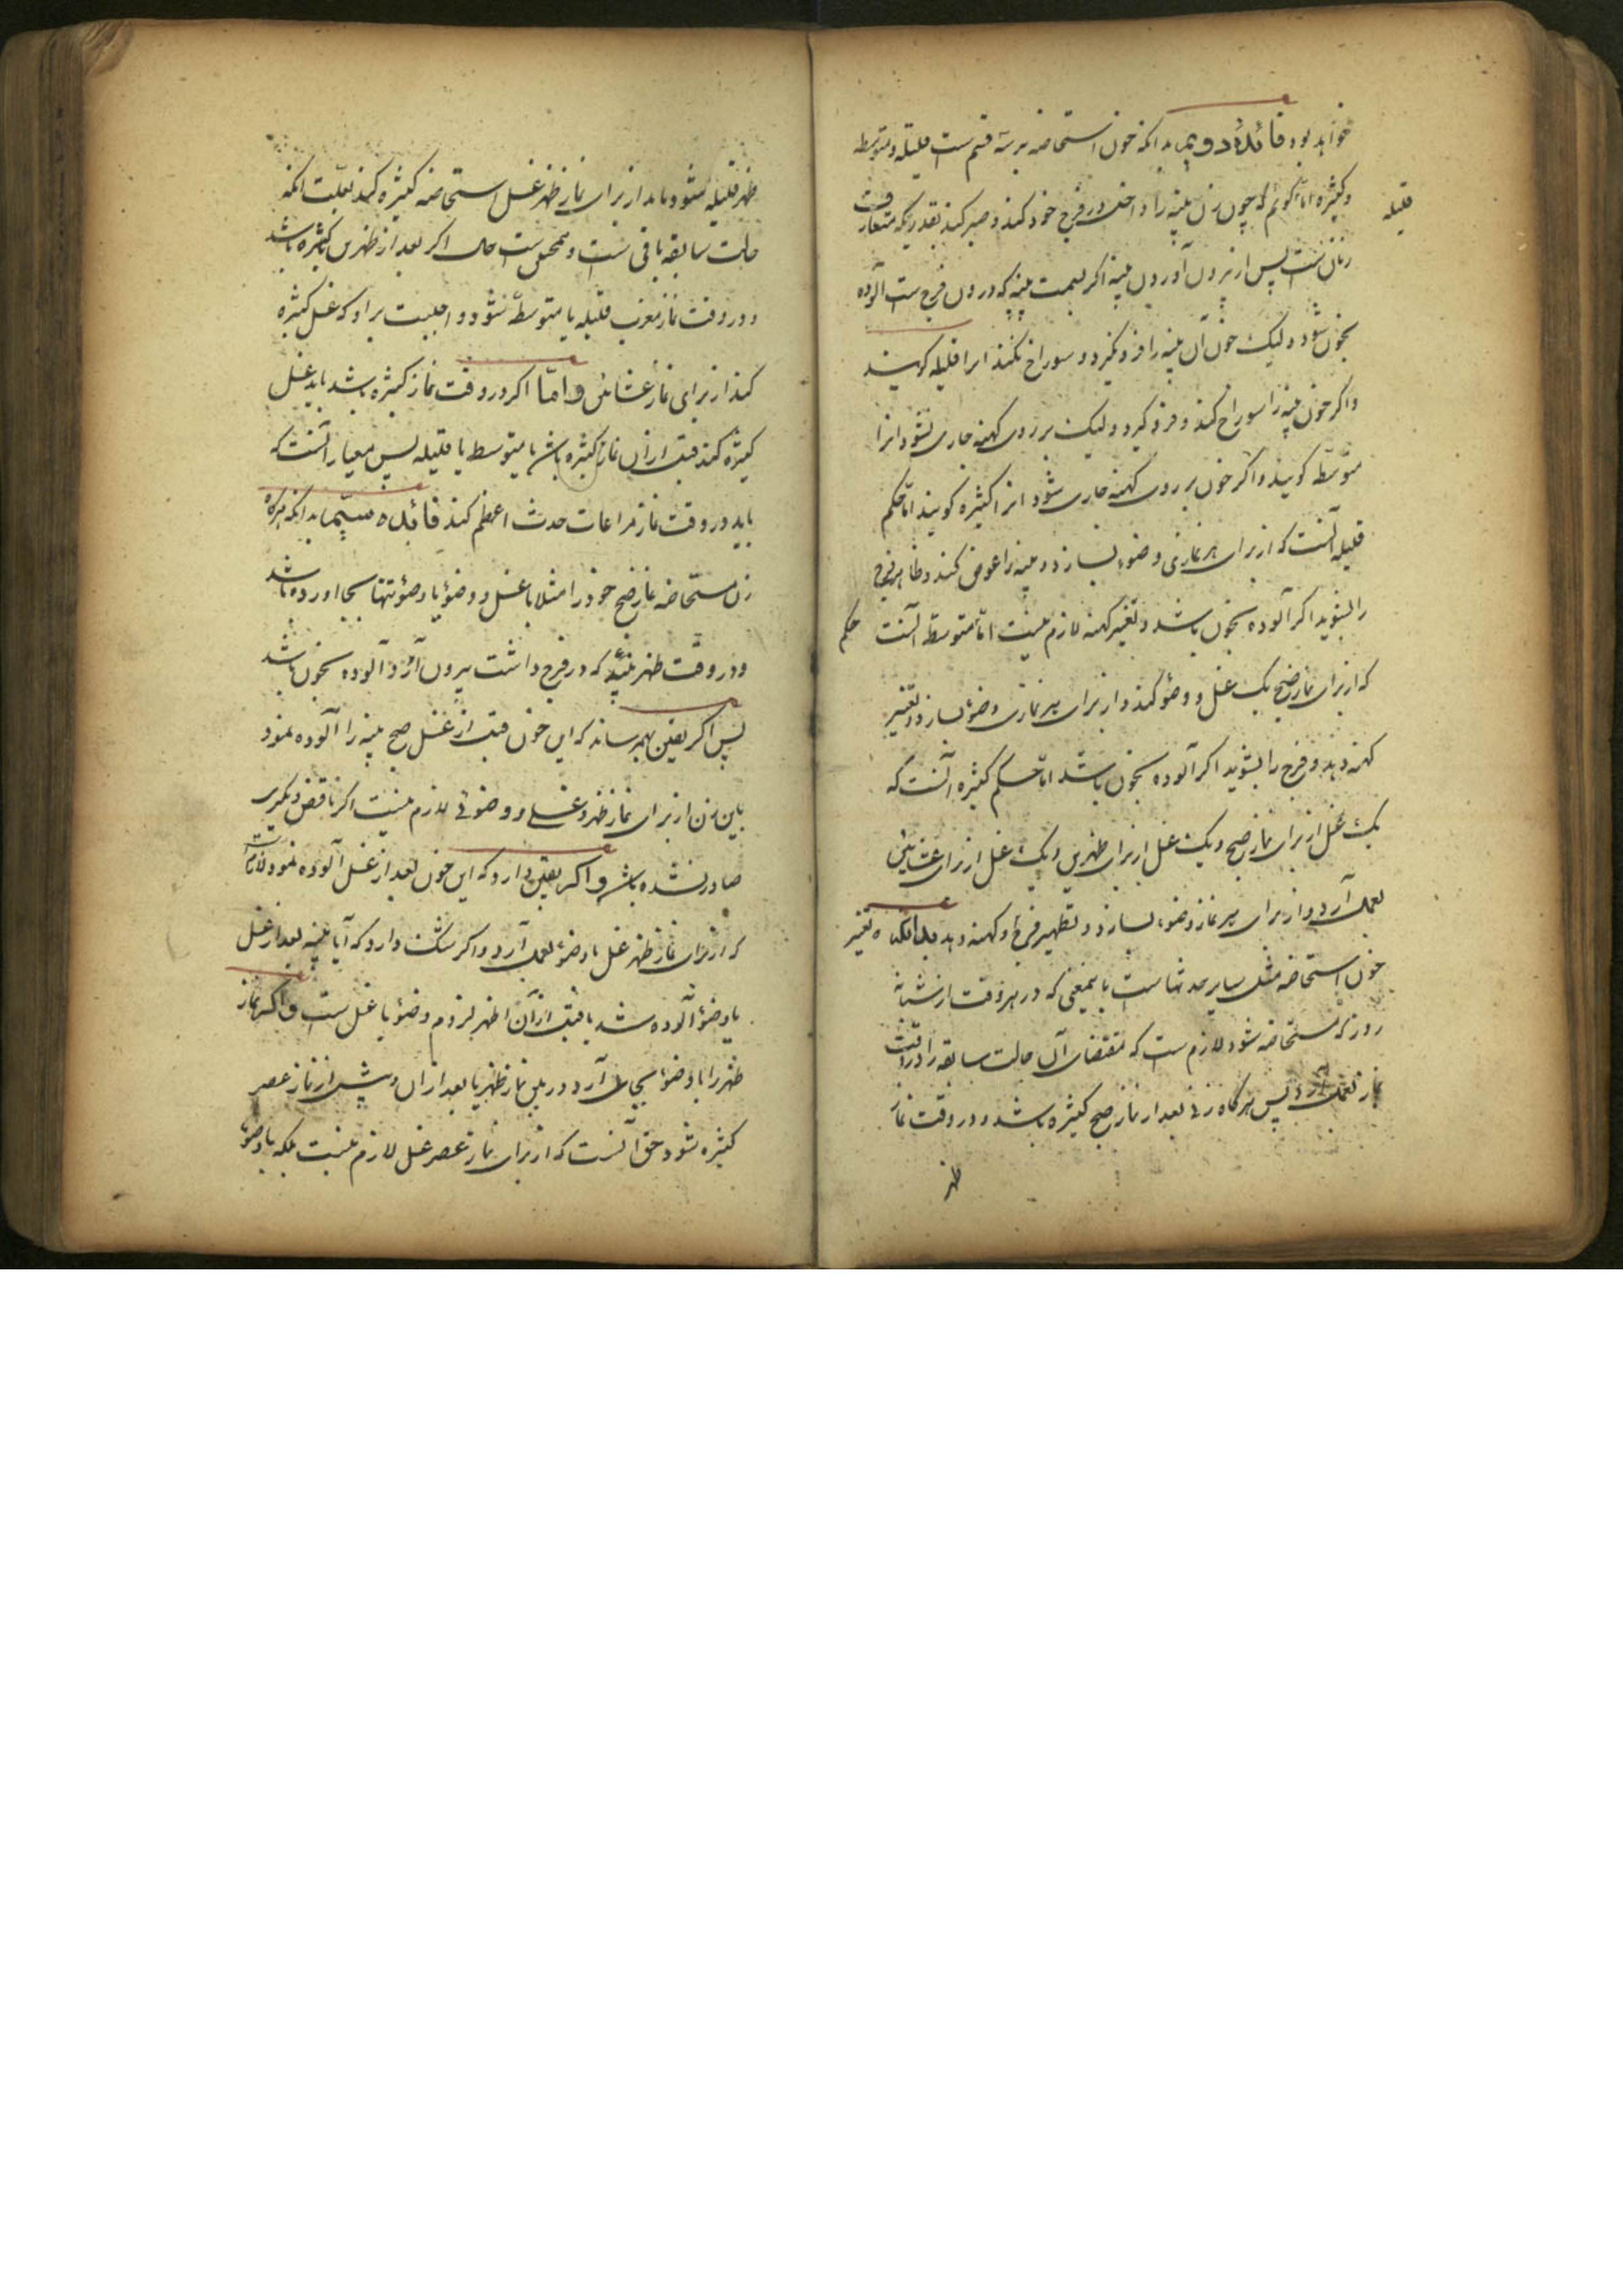 خواهد بود فائدهٔ دویم بدانکه خون استحاضه بر سه قسم است قلیله و متوسطه
و کثیره اما گوئیم که چون زن پنبه را داخل در فرج خود کند و صبر کند بقدریکه متعارف
زنان است پس از بیرون آوردن پنبه اگر سمت پنبه که درون فرج است آلوده
بخون شود و لیک خون آن پنبه را فرو نگیرد و سوراخ نکند انرا قلیله گویند
و اگر خون پنبه را سوراخ کند و فرو گیرد و لیک بر روی کهنه جاری نشود انرا
متوسطه گویند و اگر خون بر روی کهنه جاری شود انرا کثیره گویند اما حکم
قلیله آنست که از برای هر نمازی وضوء بسازد و پنبه را عوض کند و ظاهر فرج
را بشوید اگر آلوده بخون باشد و تغییر کهنه لازم نیست اما متوسطه آنست
که از برای نماز صبح یک غسل و وضو کند و از برای هر نمازی وضو بسازد و تغییر
کهنه دهد و فرج را بشوید اگر آلوده بخون باشد اما حکم کثیره آنست که
یک غسل از برای نماز صبح و یک غسل از برای ظهرین و یک غسل از برای عشائین
بعمل آرد و از برای هر نماز وضوء بسازد و تطهیر فرج و کهنه دهد بدانکه تغییر
خون استحاضه مثل سایر حدثها است باینمعنی که در هر وقت از شبانه
روز که مستحاضه شود لازم است که مقتضای آن حالت سابقه را در وقت
نماز بعمل آرد پس هرگاه زنی بعد از نماز صبح کثیره باشد و در وقت نماز
ظهر
قلیله
حکم
ظهر قلیله شود باید از برای نماز ظهر غسل استحاضه کثیره کند بعلت انکه
حالت سابقه باقی است و همچنین است حال اگر بعد از ظهرین کثیره باشد
و در وقت نماز مغرب قلیله یا متوسطه شود واجبست بر او که غسل کثیره
کند از برای نماز عشائین و اما اگر در وقت نماز کثیره باشد باید غسل
کثیره کند قبل از ان نماز کثیره باشد یا متوسط یا قلیله پس معیار آنست که
باید در وقت نماز مراعات حدث اعظم کند فائده سیم بدانکه هرگاه
زن مستحاضه نماز صبح خود را مثلا با غسل و وضو یا وضوء تنها بجا اورده باشد
و در وقت ظهر پنبه که در فرج داشت بیرون آرد آلوده بخون باشد
پس اگر یقین بهم رساند که این خون قبل از غسل صبح پنبه را آلوده نمود
باین زن از برای نماز ظهر غسلی و وضوئی لازم نیست اگر ناقض دیگری
صادر نشده باشد و اگر یقین دارد که این خون بعد از غسل آلوده نمود لازم است
که از برای نماز ظهر غسل یا وضو بعمل آرد و اگر شک دارد که آیا پنبه بعد از غسل
یا وضو آلوده شد یا قبل از آن اظهر لزوم وضو یا غسل است و اگر نماز
ظهر را با وضو بجای آرد و در بین نماز ظهر یا بعد از ان و پیش از نماز عصر
کثیره شود حق آنست که از برای نماز عصر غسل لازم نیست بلکه با وضو